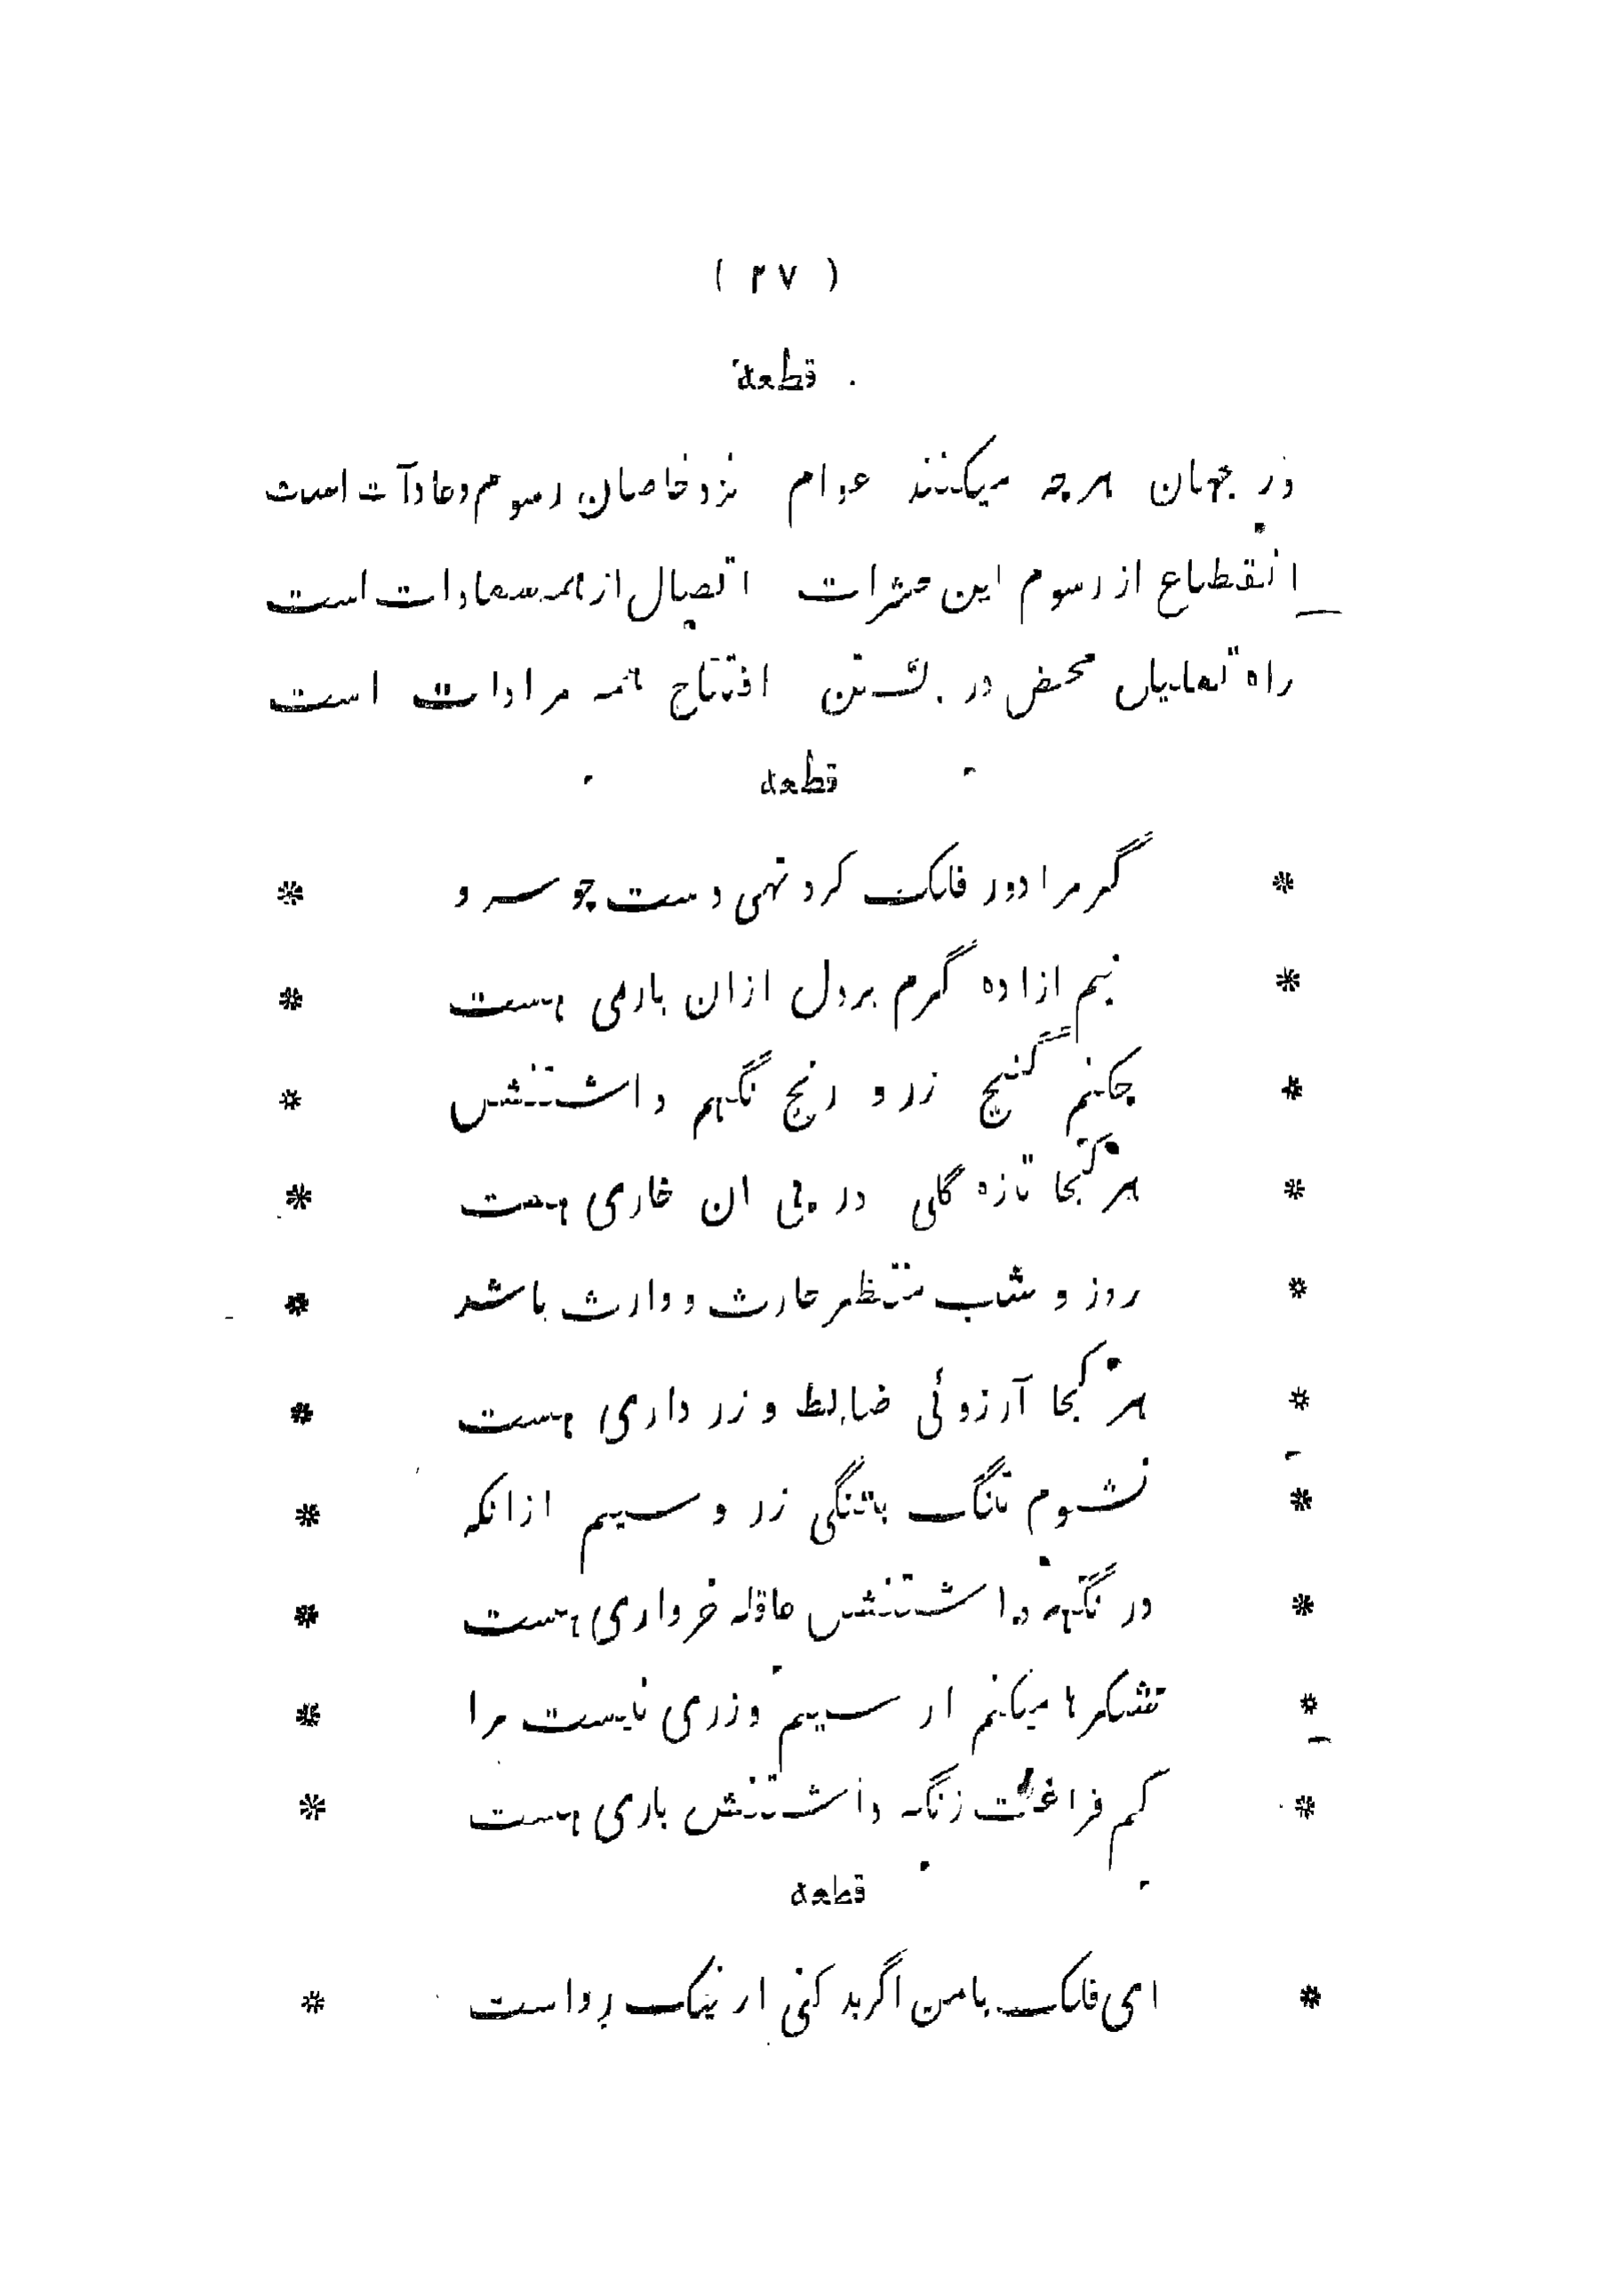 ( ٢٧ )
قطعة
در جهان هرچه میکنند عوام نزد خاصان رسوم وعادآت است
انقطاع از رسوم این حشرات اتصال از همه سعادات است
راه تعلیل محض در بستن افتتاح همه مرادات است
قطعه
* گر مرا دور فلک کرد تهی دست چو سرو *
* نیم ازاده گرم بردل ازان باری هست *
* چکنم گنج زر و رنج نگهم داشتنش *
* هر کجا تازه گلی در پی ان خاری هست *
* روز و شب منتظر حارث و وارث باشد *
* هر کجا آرزوئی ضابط و زر داری هست *
* نشوم تنگ بتنگی زر و سیم ازانکه *
* در نگهه داشتنش عاقله خرواری هست *
* شکرها میکنم ار سیم وزری نیست مرا *
* کم فراغت زنگه داشتنش باری هست *
قطعه
* ای فلک بامن اگر بد کنی ار نیک رواست *